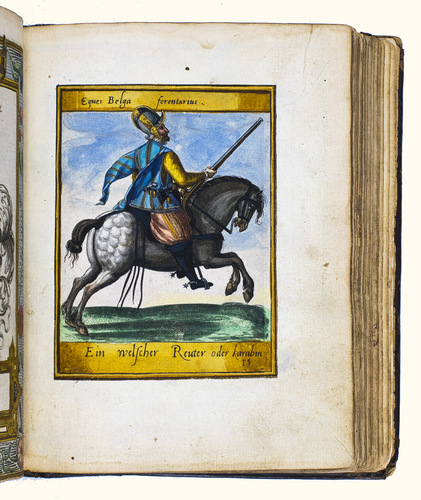 Eques Belga ferentarius.
Ein welscher Reuter oder karabin
15